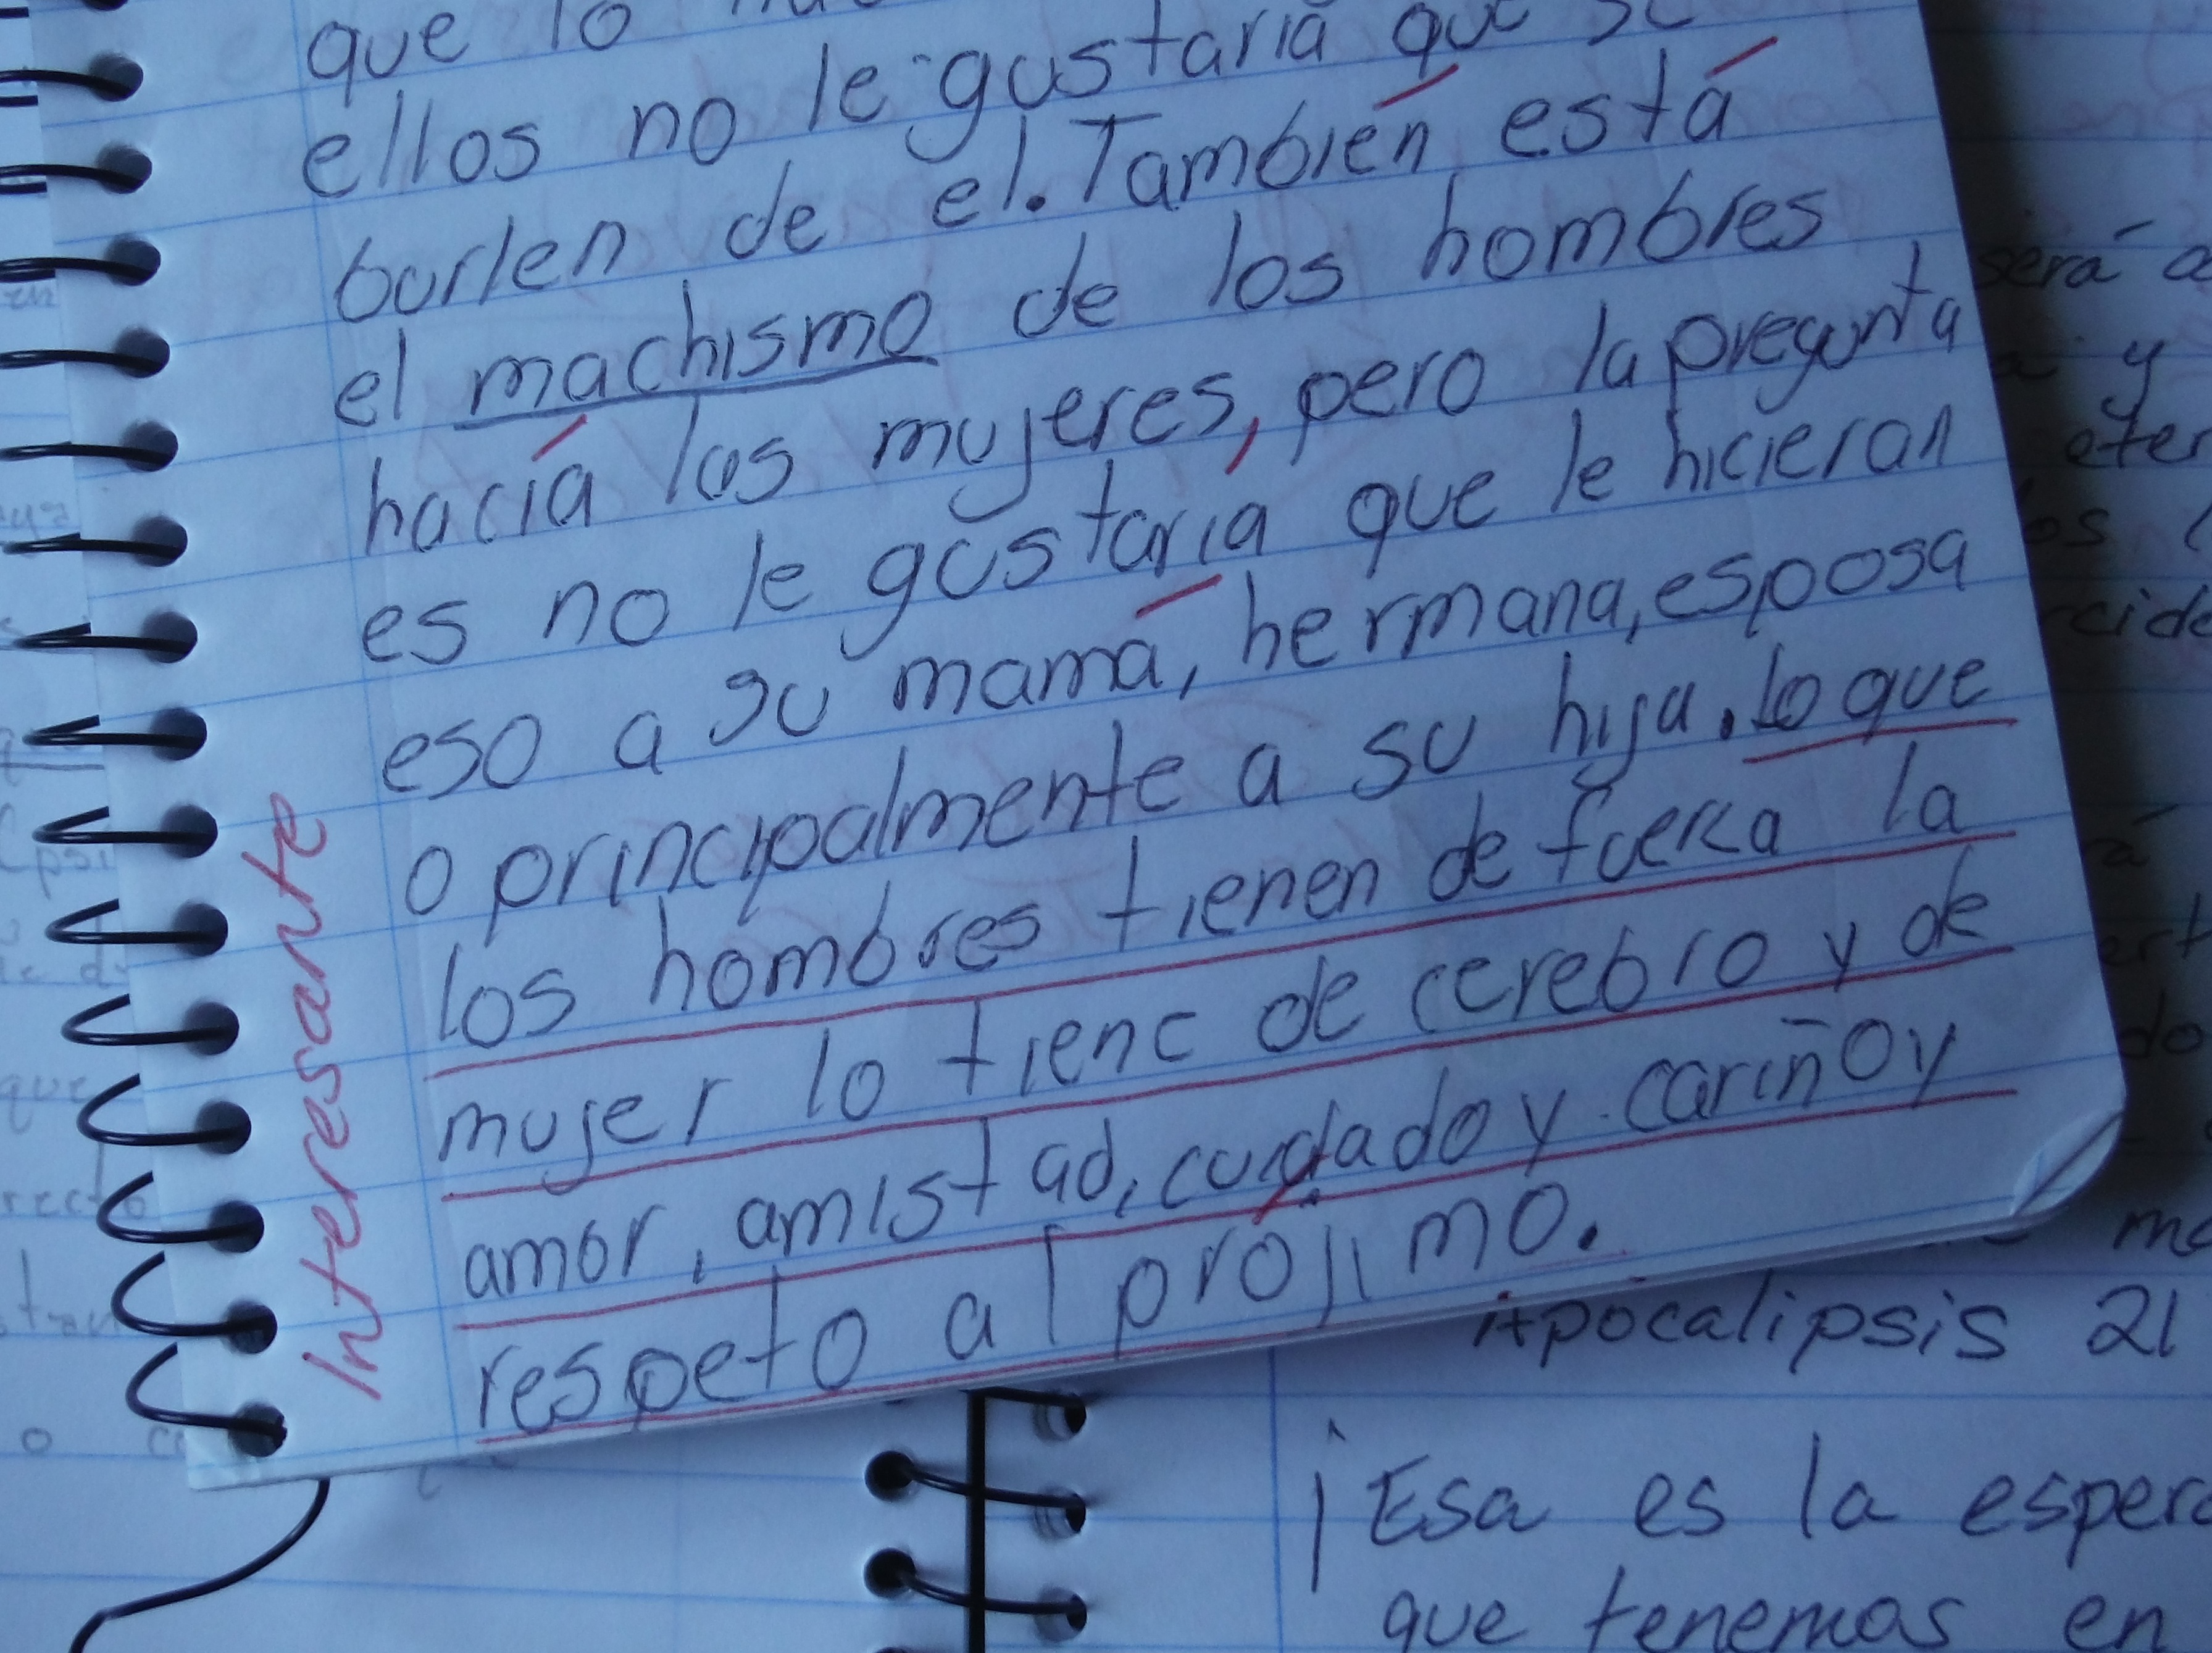 que lo
ellos no le gustaría que se
burlen de el. También está
el machismo de los hombres
hacía las mujeres, pero la pregunta
es no le gustaría que le hicieran
eso a su mamá, hermana, esposa
o principalmente a su hija. lo que
los hombres tienen de fuerza la
mujer lo tiene de cerebro y de
amor, amistad, cuidado y cariño y
respeto al prójimo.
Interesante
será a
y
Apocalipsis 21
¡Esa es la espera
que tenemos en